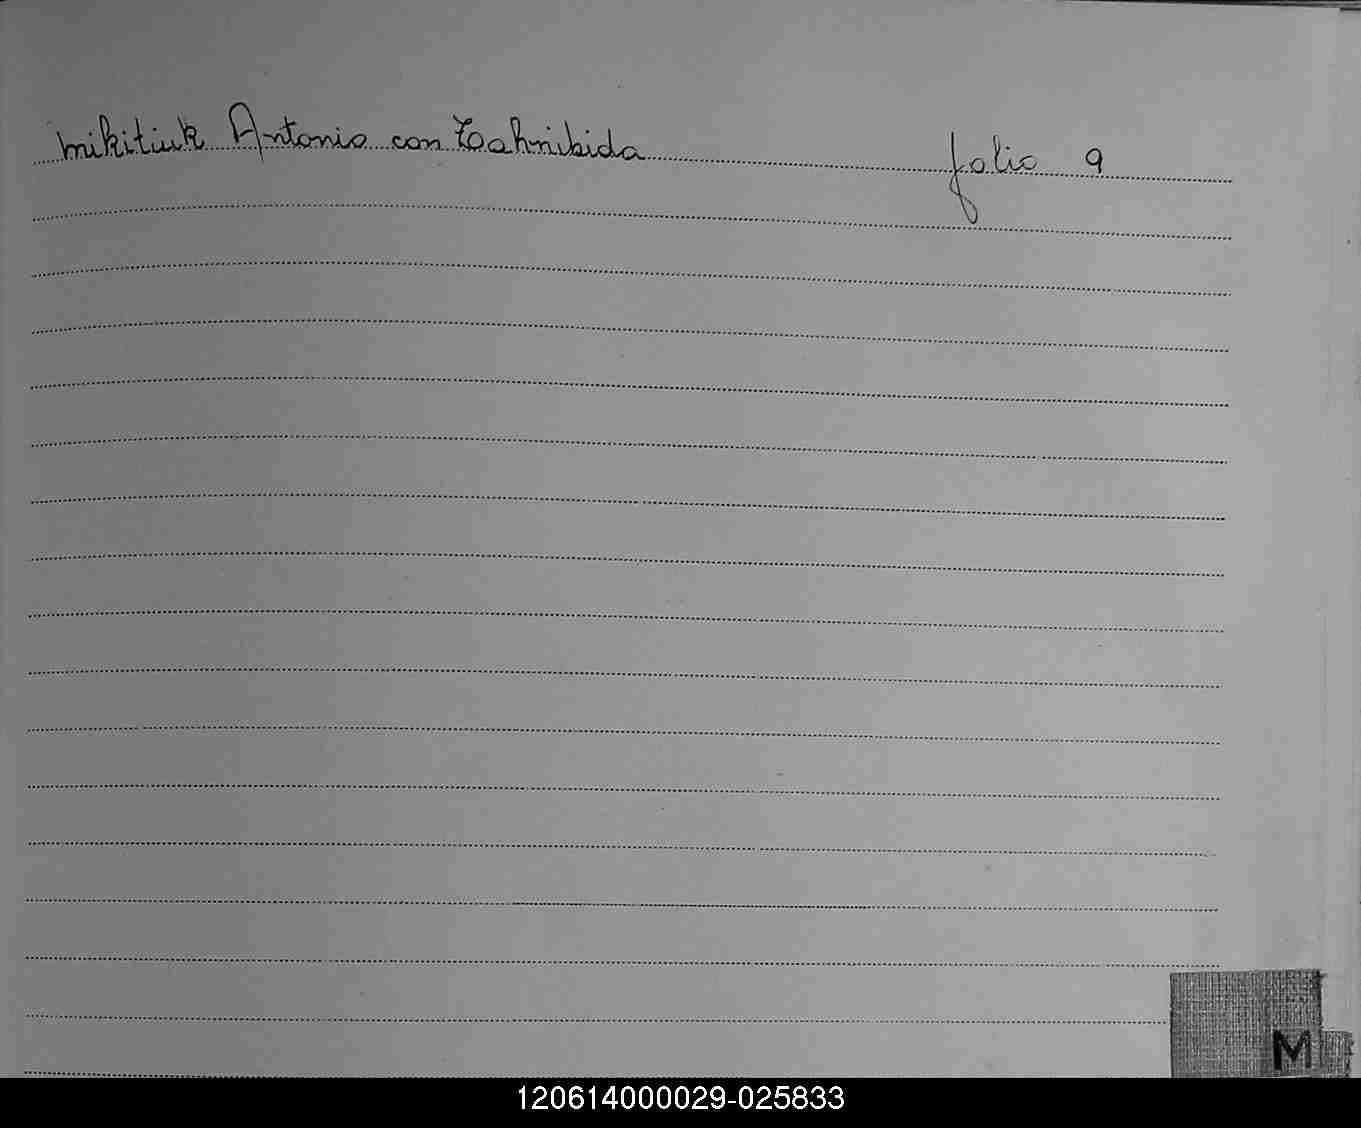 mikitiuk Antonio con Zahnibida folio 9
M
120614000029-025833